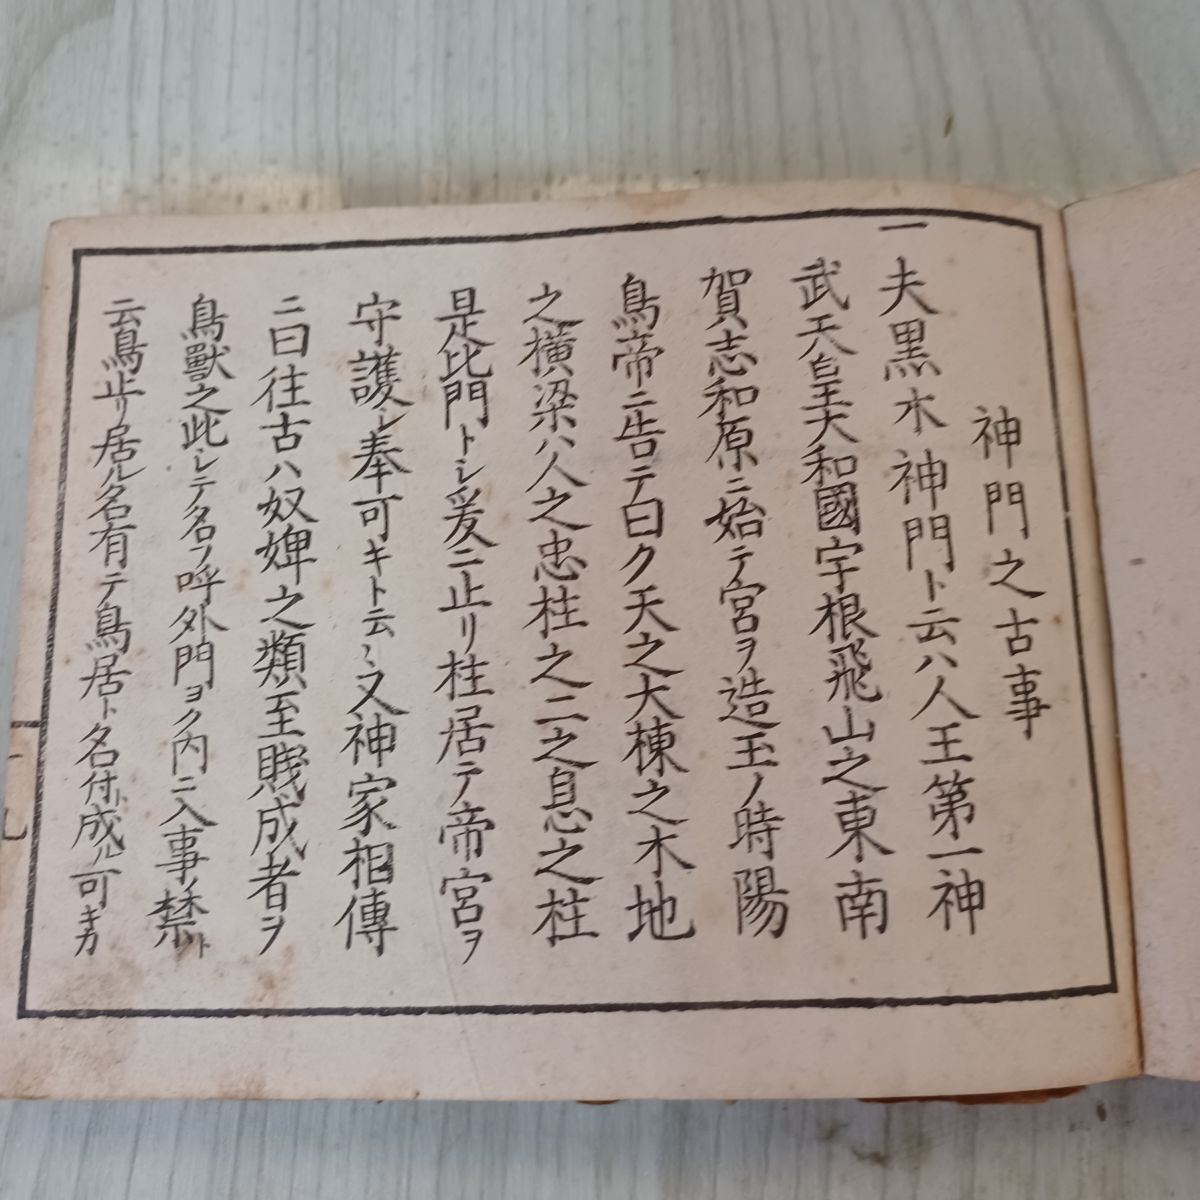 神門之古事
一夫黒木神門ト云ハ人王第一神
武天皇大和國宇根飛山之東南
賀志和原ニ始テ宮ヲ造玉ノ時陽
鳥帝ニ告テ曰ク天之大棟之木地
之横梁ハ人之忠柱之二之息之柱
是比門トシ爰ニ止リ柱居テ帝宮ヲ
守護シ奉可キト云ミ又神家相傳
ニ曰往古ハ奴婢之類至賤成者ヲ
鳥獸之此シテ名フ呼外門ヨク内ニ入事禁ト
云鳥止リ居ル名有テ鳥居ト名付成ル可キカ